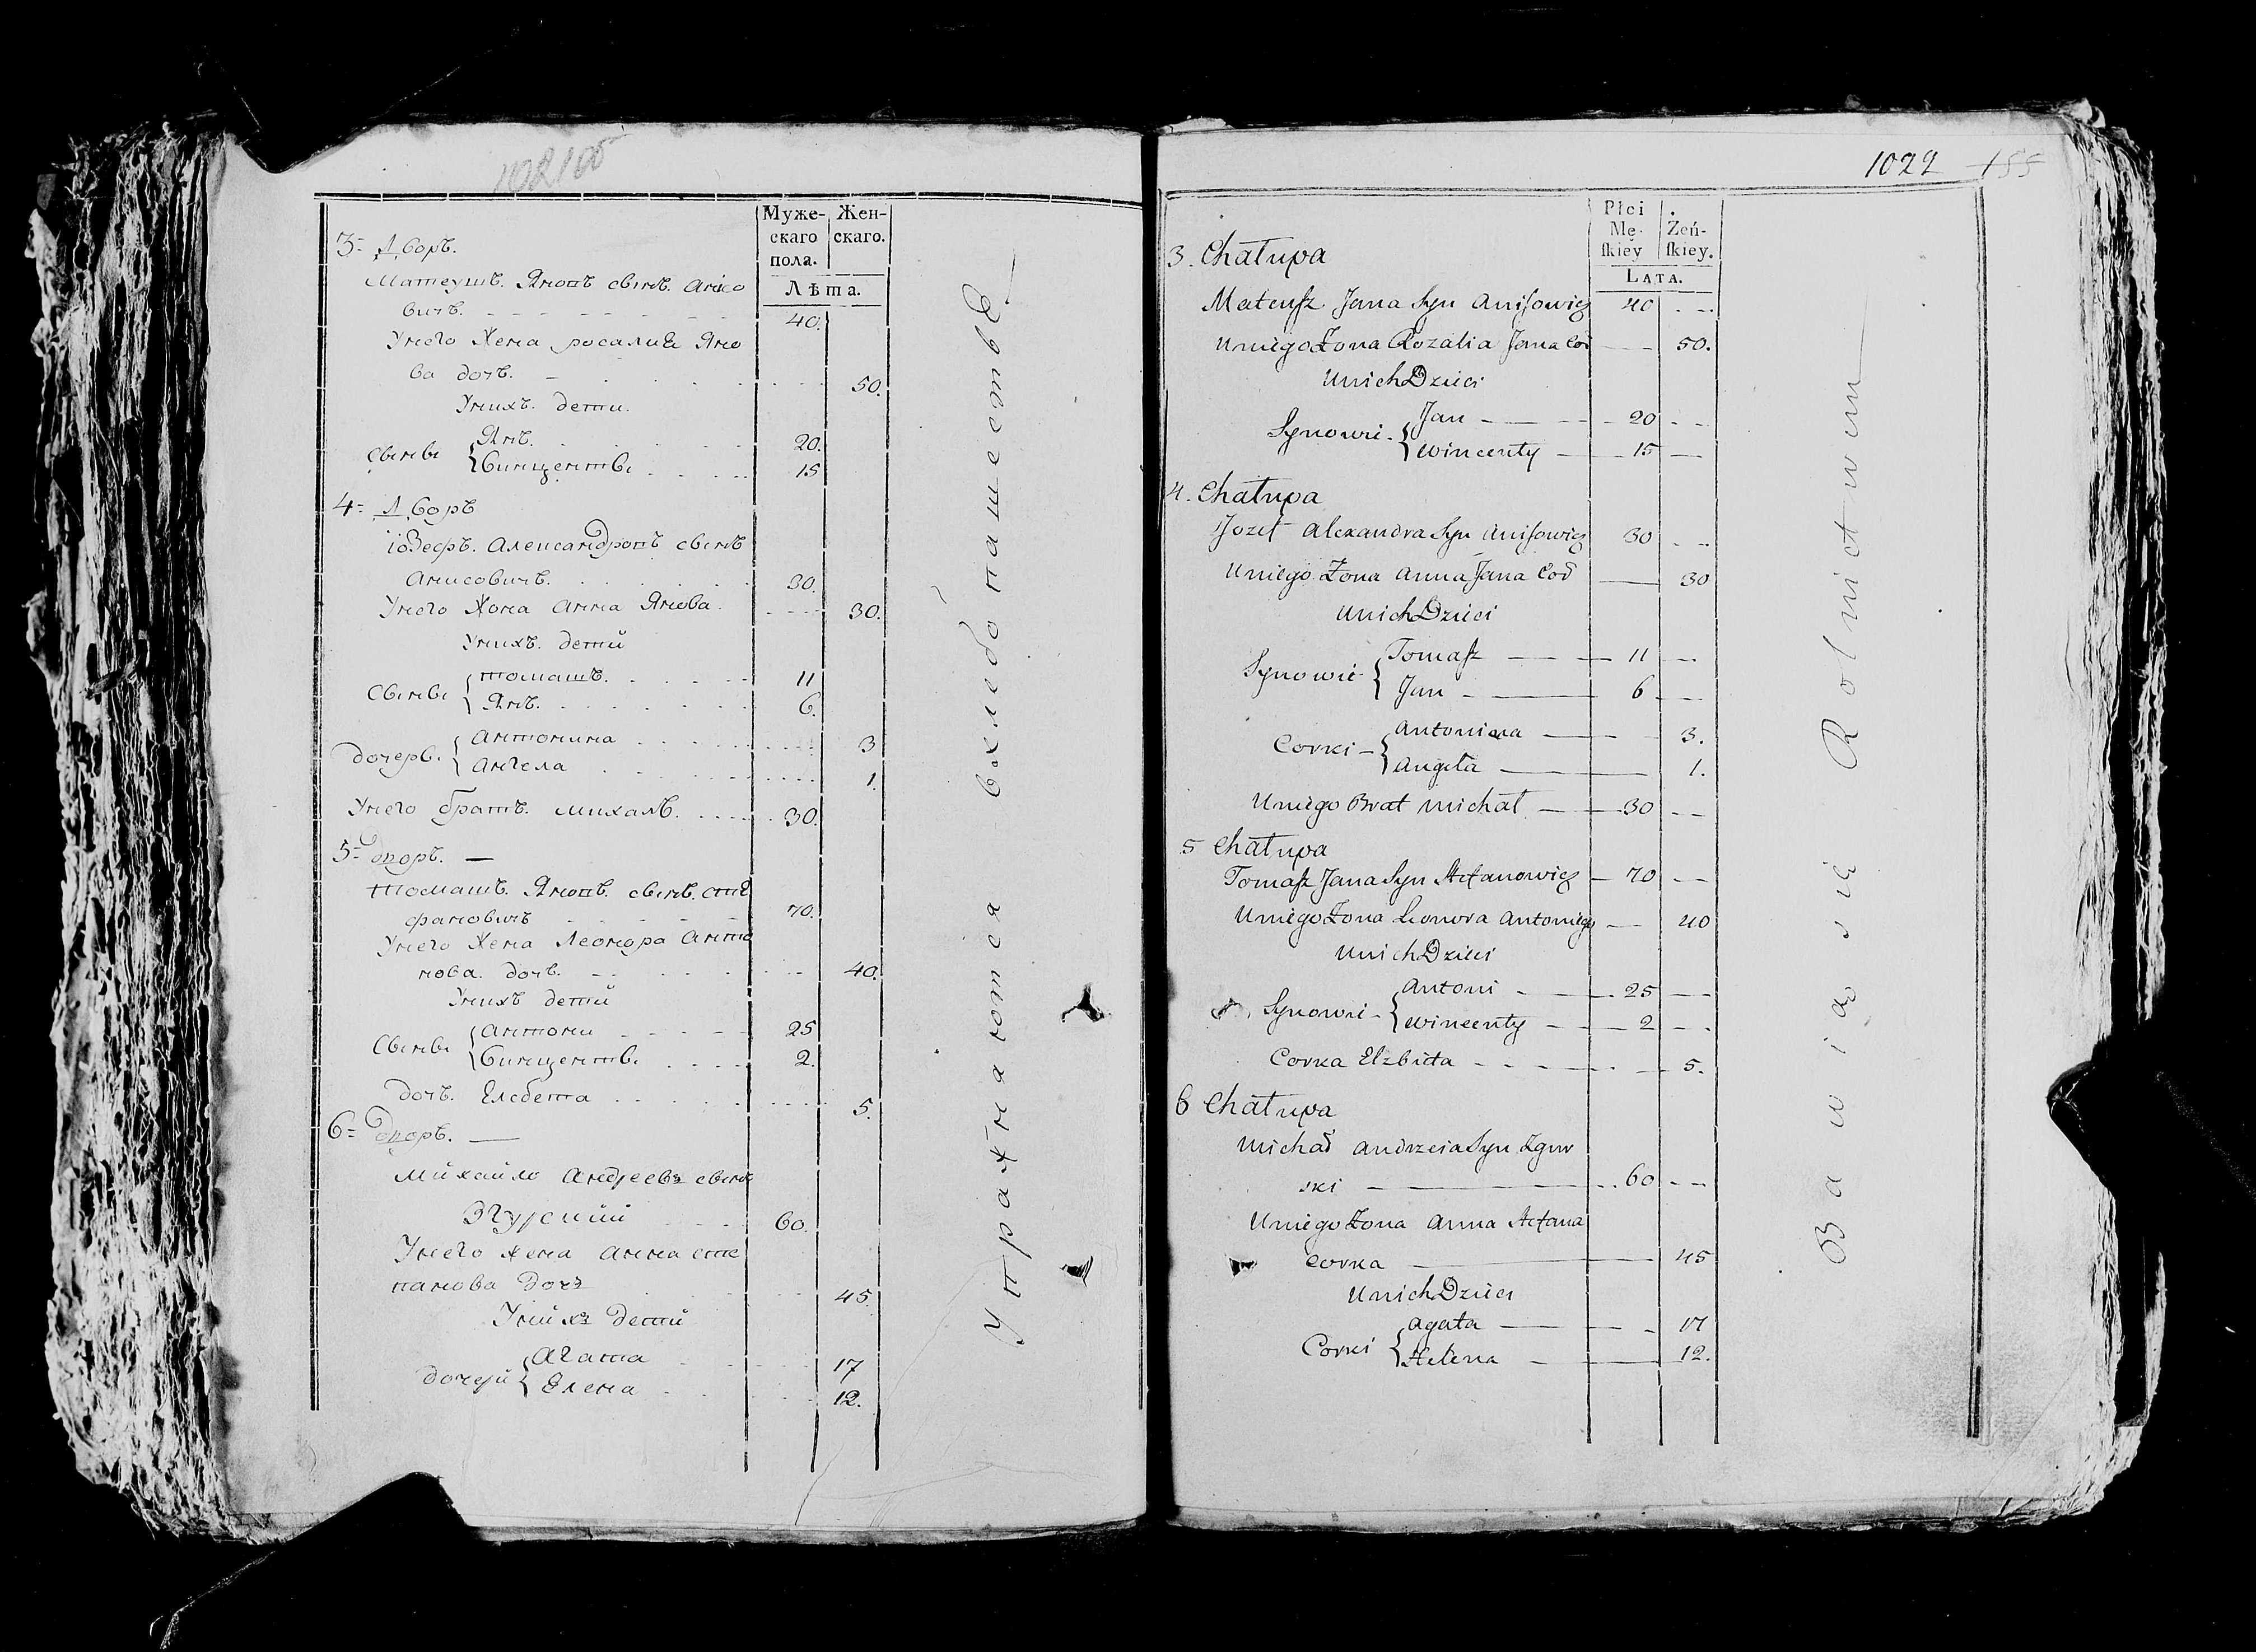 102 155
Муже-
скаго
пола.
Жен-
скаго.
Лѣта.
3= Дворъ.
Матеушъ. Яновъ сынъ. Анисо
вичъ. 40.
Унего Жена росалиѣ Яно
ва дочь. 50.
Унихъ. дети.
сыны { Янъ. 20.
Винценты 15
4= Дворъ
іозефъ. Александровъ сынъ
Анисовичъ. 30.
Унего Жона Анна Янова. 30.
Унихъ. детй
Сыны { томашъ. 11
Янъ. 6.
дочерь. { Антонина 3
Ангела 1.
Унего братъ. михалъ. 30.
5= дворъ. —
томашъ. Яновъ. сынъ. сте
фановичъ 70.
Унего Жена Леонора Анто
нова. дочь. 40.
Унихъ детй
Сыны { Антони 25
Винценты. 2.
дочь. Елсбета 5.
6= дворъ. —
Мйхайло Андреевъ сынъ
Згурскйй 60.
Унего жена Анна сте
панова дочъ 45.
Унйхъ детй
дочерй { Агата 17
Елена 12.
Упражняются вхлебопашествѣ
1022 155
Płci
Mę-
skiey
Żeń-
skiey.
LATA.
3. Chałupa
Mateusz Jana Syn Anisowicz 40
Uniego Żona Rozalia Jana Cor 50.
Unich Dzieci
Synowie { Jan 20
Wincenty 15
4. Chałupa
Jozef Alexandra Syn Anisowicz 30
Uniego Żona Anna Jana Cor 30
Unich Dzieci
Synowie { Tomasz 11
Jan 6
Corki { Antonina 3.
Angela 1.
Uniego Brat Michał 30
5 Chałupa
Tomasz Jana Syn Stefanowicz 70
Uniego Żona Leonora Antoniego 40
Unich Dzieci
Synowie { Antoni 25
Wincenty 2
Corka Elzbieta 5.
6 Chałupa
Michał Andrzeia Syn Zgur
ski 60
Uniego Żona Anna Stefana
Corka 45
Unich Dzieci
Corki { Agata 17
Helena 12.
Bawią się Rolnictwem